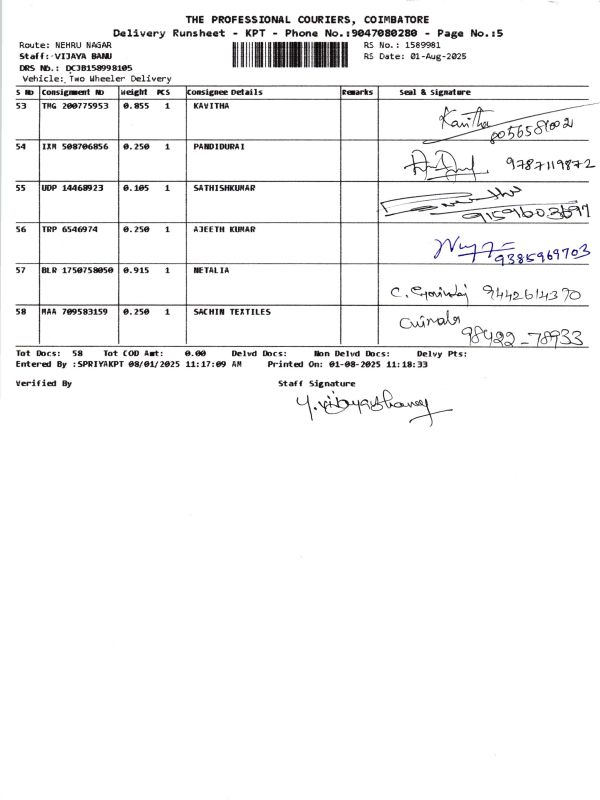 THE PROFESSIONAL COURIERS, COIMBATORE
Delivery Runsheet - KPT - Phone No.:9047080280 - Page No.:5
Route: NEHRU NAGAR RS No.: 1589981
Staff: VIJAYA BANU RS Date: 01-Aug-2025
DRS No.: DCJB158998105
Vehicle: Two Wheeler Delivery
S No Consignment No Weight PCS Consignee Details Remarks Seal & Signature
53 TMG 200775953 0.855 1 KAVITHA Kavitha
54 IXM 508706856 0.250 1 PANDIDURAI 9787119872
55 UDP 14468923 0.105 1 SATHISHKUMAR
56 TRP 6546974 0.250 1 AJEETH KUMAR 9385969703
57 BLR 1750758050 0.915 1 NETALIA C. Govindaj 9442614370
58 MAA 709583159 0.250 1 SACHIN TEXTILES 98422-78933
Tot Docs: 58 Tot COD Amt: 0.00 Delvd Docs: Non Delvd Docs: Delvy Pts:
Entered By :SPRIYAKPT 08/01/2025 11:17:09 AM Printed On: 01-08-2025 11:18:33
Verified By Staff Signature